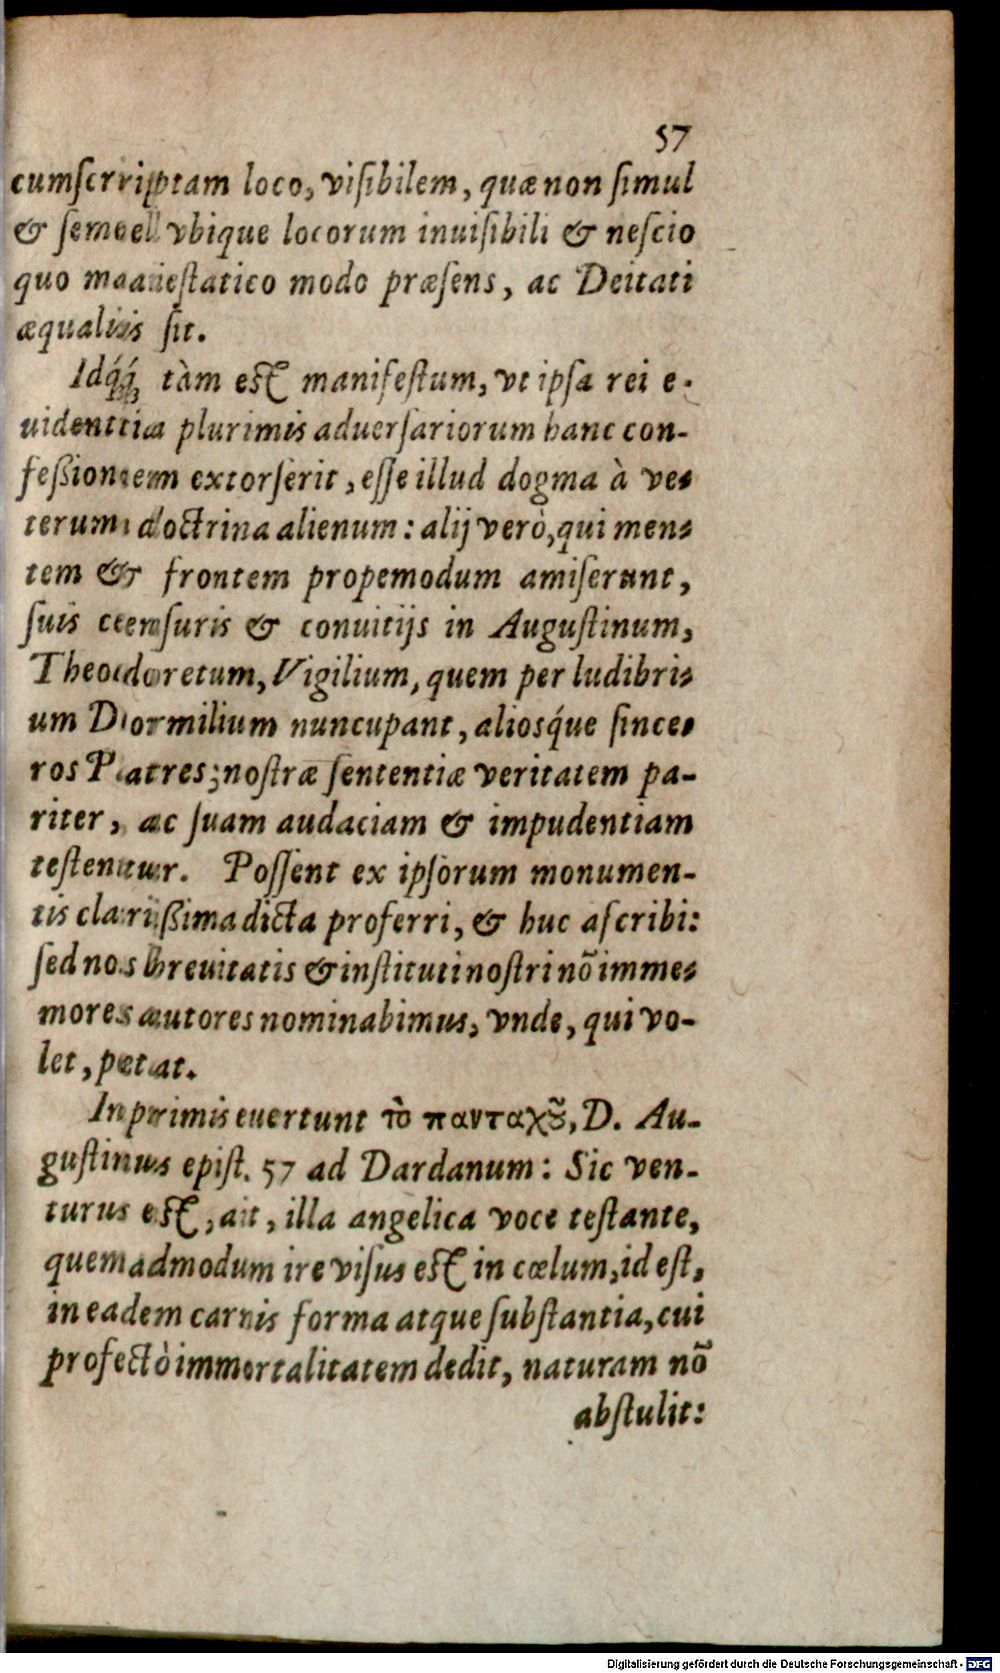 57
cumscriptam loco, visibilem, quæ non simul
& semel vbique locorum inuisibili & nescio
quo maiestatico modo præsens, ac Deitati
æqualis sit.
Idq́ue tàm est manifestum, vt ipsa rei e-
uidentia plurimis aduersariorum hanc con-
feßionem extorserit, esse illud dogma à ve-
terum doctrina alienum: alij verò, qui men-
tem & frontem propemodum amiserunt,
suis censuris & conuitijs in Augustinum,
Theodoretum, Vigilium, quem per ludibri-
um Dormilium nuncupant, aliosq́ue since-
ros Patres, nostræ sententiæ veritatem pa-
riter, ac suam audaciam & impudentiam
testentur. Possent ex ipsorum monumen-
tis clarißima dicta proferri, & huc ascribi:
sed nos breuitatis & instituti nostri nõ imme-
mores autores nominabimus, vnde, qui vo-
let, petat.
Inprimis euertunt τὸ πανταχοῦ, D. Au-
gustinus epist. 57 ad Dardanum: Sic ven-
turus est, ait, illa angelica voce testante,
quemadmodum ire visus est in cœlum, id est,
in eadem carnis forma atque substantia, cui
profectò immortalitatem dedit, naturam nõ
abstulit:
Digitalisierung gefördert durch die Deutsche Forschungsgemeinschaft - DFG